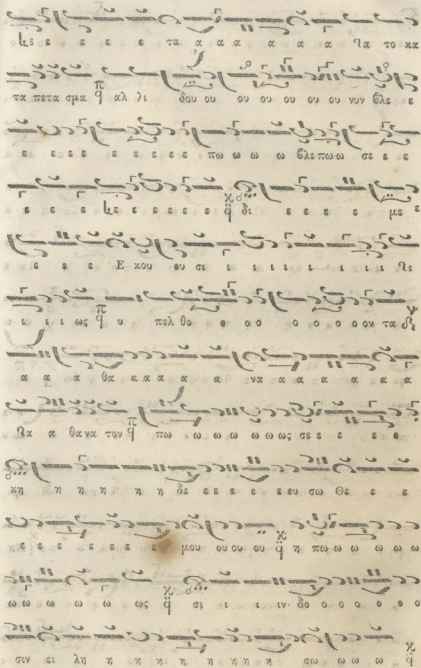 με ε ε ε ε ε τα α α α α α α α Λα το κα
τα πετα σμα π̣ͅ q̈ αλ λι δου ου ου ου ου ου ου νυν βλε ε
ε ε ε ε ε ε ε ε ε πω ω ω ω βλεπω ω σε ε ε
ε ε ε ε με ε ε ε ε ε χ q̈ δι ε ε ε ε ε με ε
ε ε ε Ε κου ου σι ι ι ι ι ι ι ι ι Λι
ι ι ι ως π q̈ υ πελ θο ο ο ο ο ο ο ο ον τα
α α α θα α α α α α να α α α α α α α
Λα α θα να τον π q̈ πω ω ω ω ω ω ως σε ε ε ε ε
κη η η η η η δε ε ε ε ε ε ευ σω Θε ε ε
ε ε ε ε ε ε ε ε μου ου ου ου χ q̈ η πω ω ω ω ω ω
ω ω ω ω ω ω ως χ q̈ σι ι ι ιν δο ο ο ο ο ο ο
σιν ει λη η η η η η η η η σω ω ω ω χ q̈